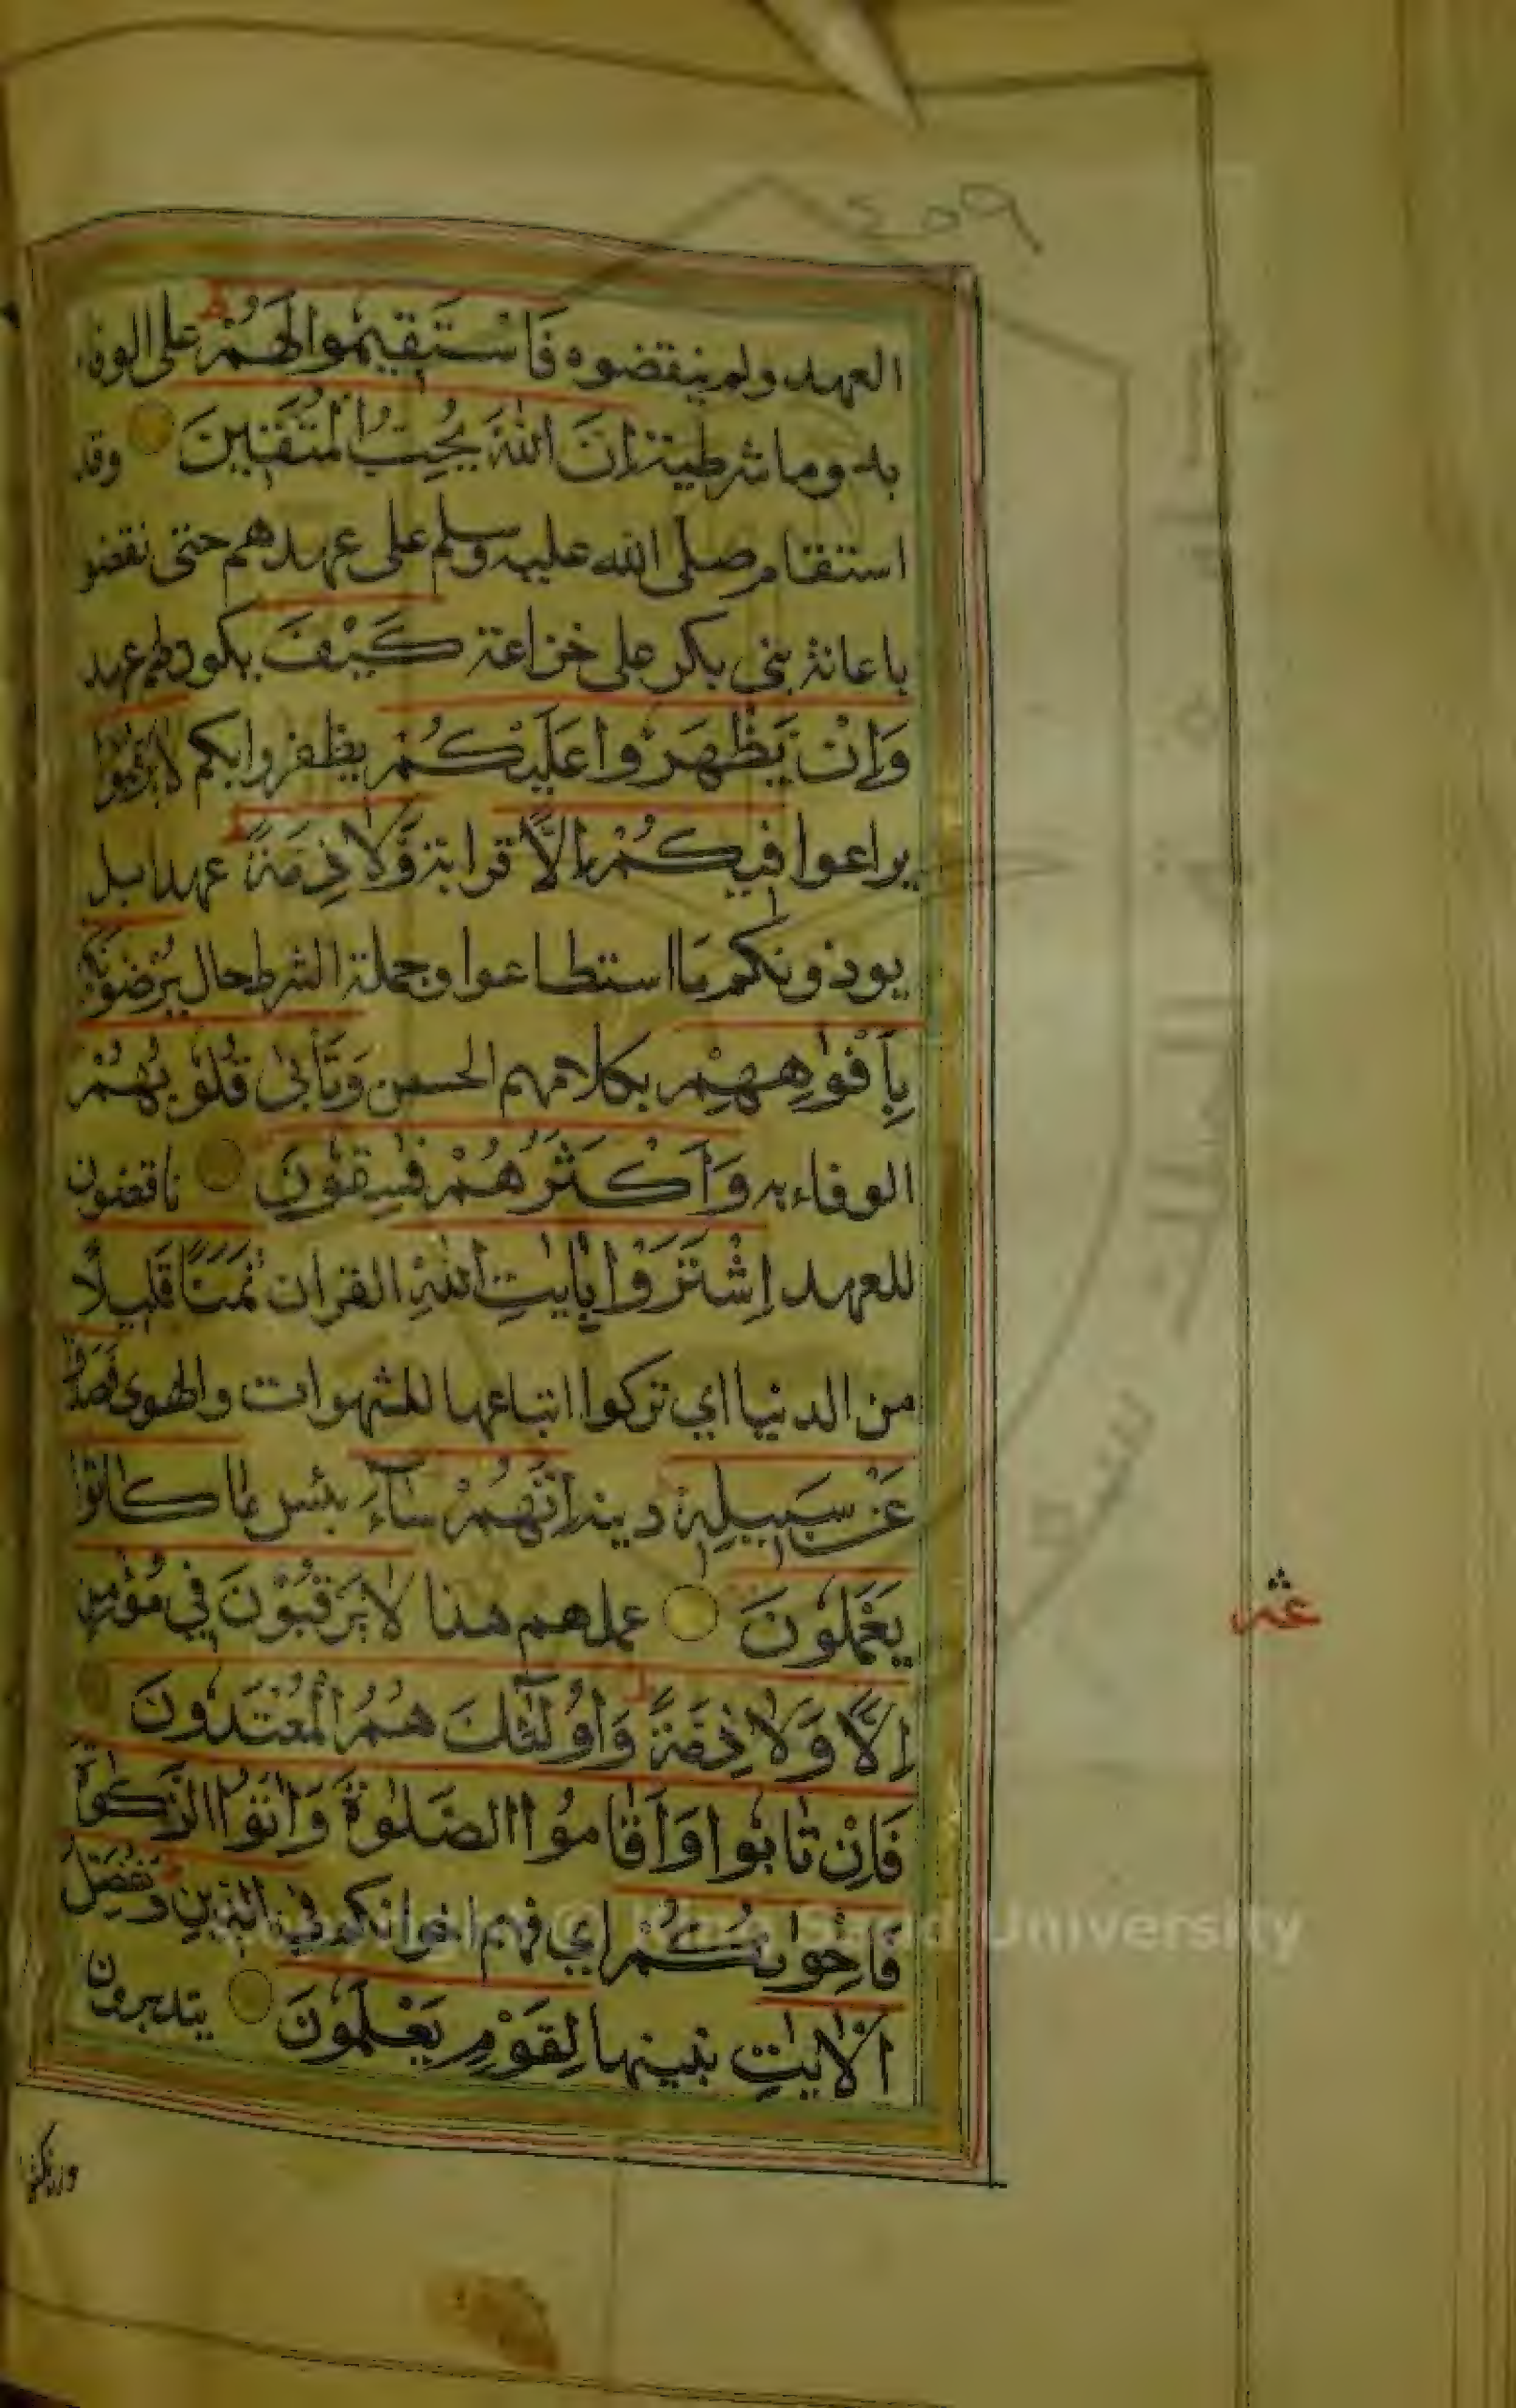 209
العهد ولم ينقضوه فَاسْتَقِيمُوا لَهُمْ على الوفاء
به وما شرطية إِنَّ اللَّهَ يُحِبُّ الْمُتَّقِينَ وقد
استقام صلى الله عليه وسلم على عهدهم حتى نقضو
باعانة بني بكر على خزاعة كَيْفَ يكون لهم عهد
وَإِنْ يَظْهَرُوا عَلَيْكُمْ يظفروا بكم لَا يَرْقُبُوا
يراعوا فِيكُمْ إِلًّا قرابة وَّلَا ذِمَّةً عهدا بل
يوذونكم ما استطاعوا وجملة الشرط حال يُرْضُونَكُمْ
بِأَفْوَاهِهِمْ بكلامهم الحسن وَتَأْبَى قُلُوبُهُمْ
الوفاء به وَأَكْثَرُهُمْ فَسِقُونَ ناقضون
للعهد اِشْتَرَوْا بِآيٰتِ اللَّهِ القران ثَمَنًا قَلِيلًا
من الدنيا اي تركوا اتباعها للشهوات والهوى فَصَدُّوا
عَنْ سَبِيلِهِ دينه إِنَّهُمْ سَآءَ بئس مَا كَانُوا
يَعْمَلُونَ عملهم هذا لَا يَرْقُبُونَ فِي مُؤْمِنٍ
إِلًّا وَلَا ذِمَّةً وَأُولَٰئِكَ هُمُ الْمُعْتَدُونَ
فَإِنْ تَابُوا وَأَقَامُوا الصَّلٰوةَ وَآتَوُا الزَّكٰوةَ
فَإِخْوٰنُكُمْ اي فهم اخوانكم فِي الدِّينِ وَنُفَصِّلُ
الْآيٰتِ نبينها لِقَوْمٍ يَعْلَمُونَ يتدبرون
عشر
University